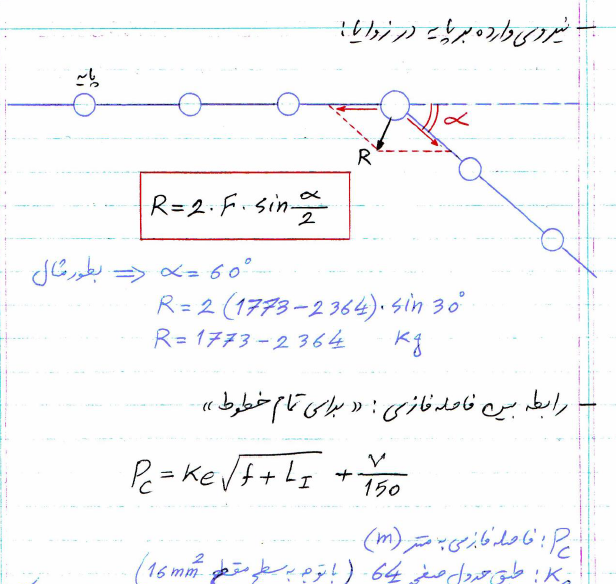 - نیروی وارده بر پایه در زوایا:
پایه
α
R
R = 2 · F · sin α/2
بطور مثال ⇒ α = 60°
R = 2 (1773 - 2364) · sin 30°
R = 1773 - 2364 Kg
- رابطه بین فاصله فازی : « برای تمام خطوط »
P_C = Ke √(f + L_I) + V/150
P_C : فاصله فازی به متر (m)
Ke : طبق جدول صفحه 64 ( با توجه به سطح مقطع 16mm²)